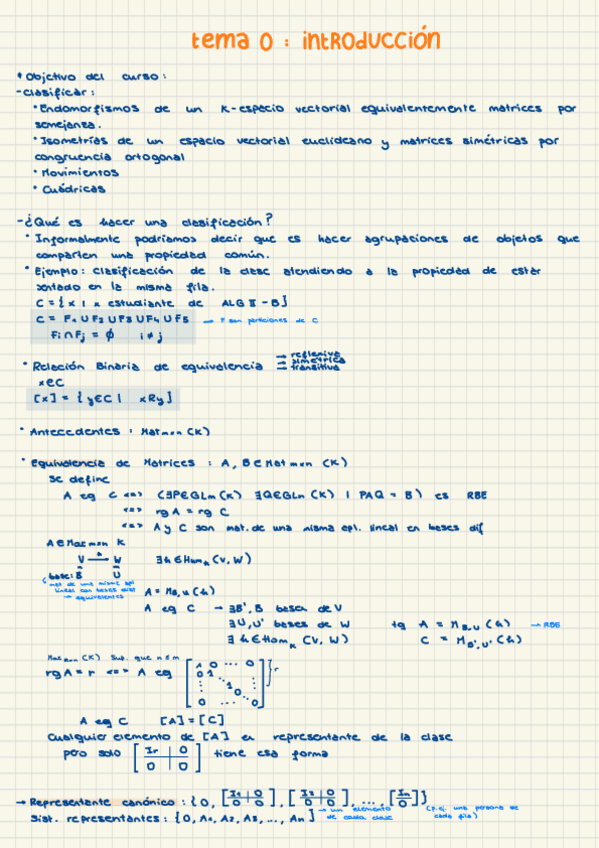 tema 0 : introducción
* Objetivo del curso :
- clasificar :
• Endomorfismos de un K-espacio vectorial equivalentemente matrices por
semejanza.
• Isometrías de un espacio vectorial euclideano y matrices simétricas por
congruencia ortogonal
• Movimientos
• Cuádricas
- ¿Qué es hacer una clasificación?
• Informalmente podríamos decir que es hacer agrupaciones de objetos que
comparten una propiedad común.
• Ejemplo : Clasificación de la clase atendiendo a la propiedad de estar
sentado en la misma fila.
C = { x | x estudiante de ALG II - B }
C = F₁ ∪ F₂ ∪ F₃ ∪ F₄ ∪ F₅ → F son particiones de C
Fi ∩ Fj = ∅ i ≠ j
• Relación Binaria de equivalencia → reflexiva
→ simétrica
→ transitiva
x ∈ C
[x] = { y ∈ C | xRy }
• Antecedentes : Mat m×n (K)
• Equivalencia de Matrices : A, B ∈ Mat m×n (K)
Se define
A eq C <=> (∃P∈GLm (K) ∃Q∈GLn (K) | PAQ = B) es RBE
<=> rg A = rg C
<=> A y C son mat. de una misma apl. lineal en bases dif
A ∈ Mat m×n K
V →ʰ W ∃ h ∈ Homₖ (V, W)
base: B U
(mat de una misma apl
lineal con bases dist
→ equivalentes
A = M_B,U (h)
A eq C → ∃B', B bases de V
∃U, U' bases de W tq A = M_B,U (h) → RBE
∃ h ∈ Homₖ (V, W) C = M_B',U' (h)
Mat m×n (K) Sup. que n ≤ m
rg A = r <=> A eq [1 0 ... 0
0 1
1
0 ... 0] r
A eq C [A] = [C]
Cualquier elemento de [A] es representante de la clase
pero solo [Ir 0
0 0] tiene esa forma
→ Representante canónico : {0, [I₁ 0 / 0 0], [I₂ 0 / 0 0], ..., [In / 0]}
→ un elemento de cada clase
(p.ej. una persona de cada fila)
Sist. representantes : {0, A₁, A₂, A₃, ..., An}